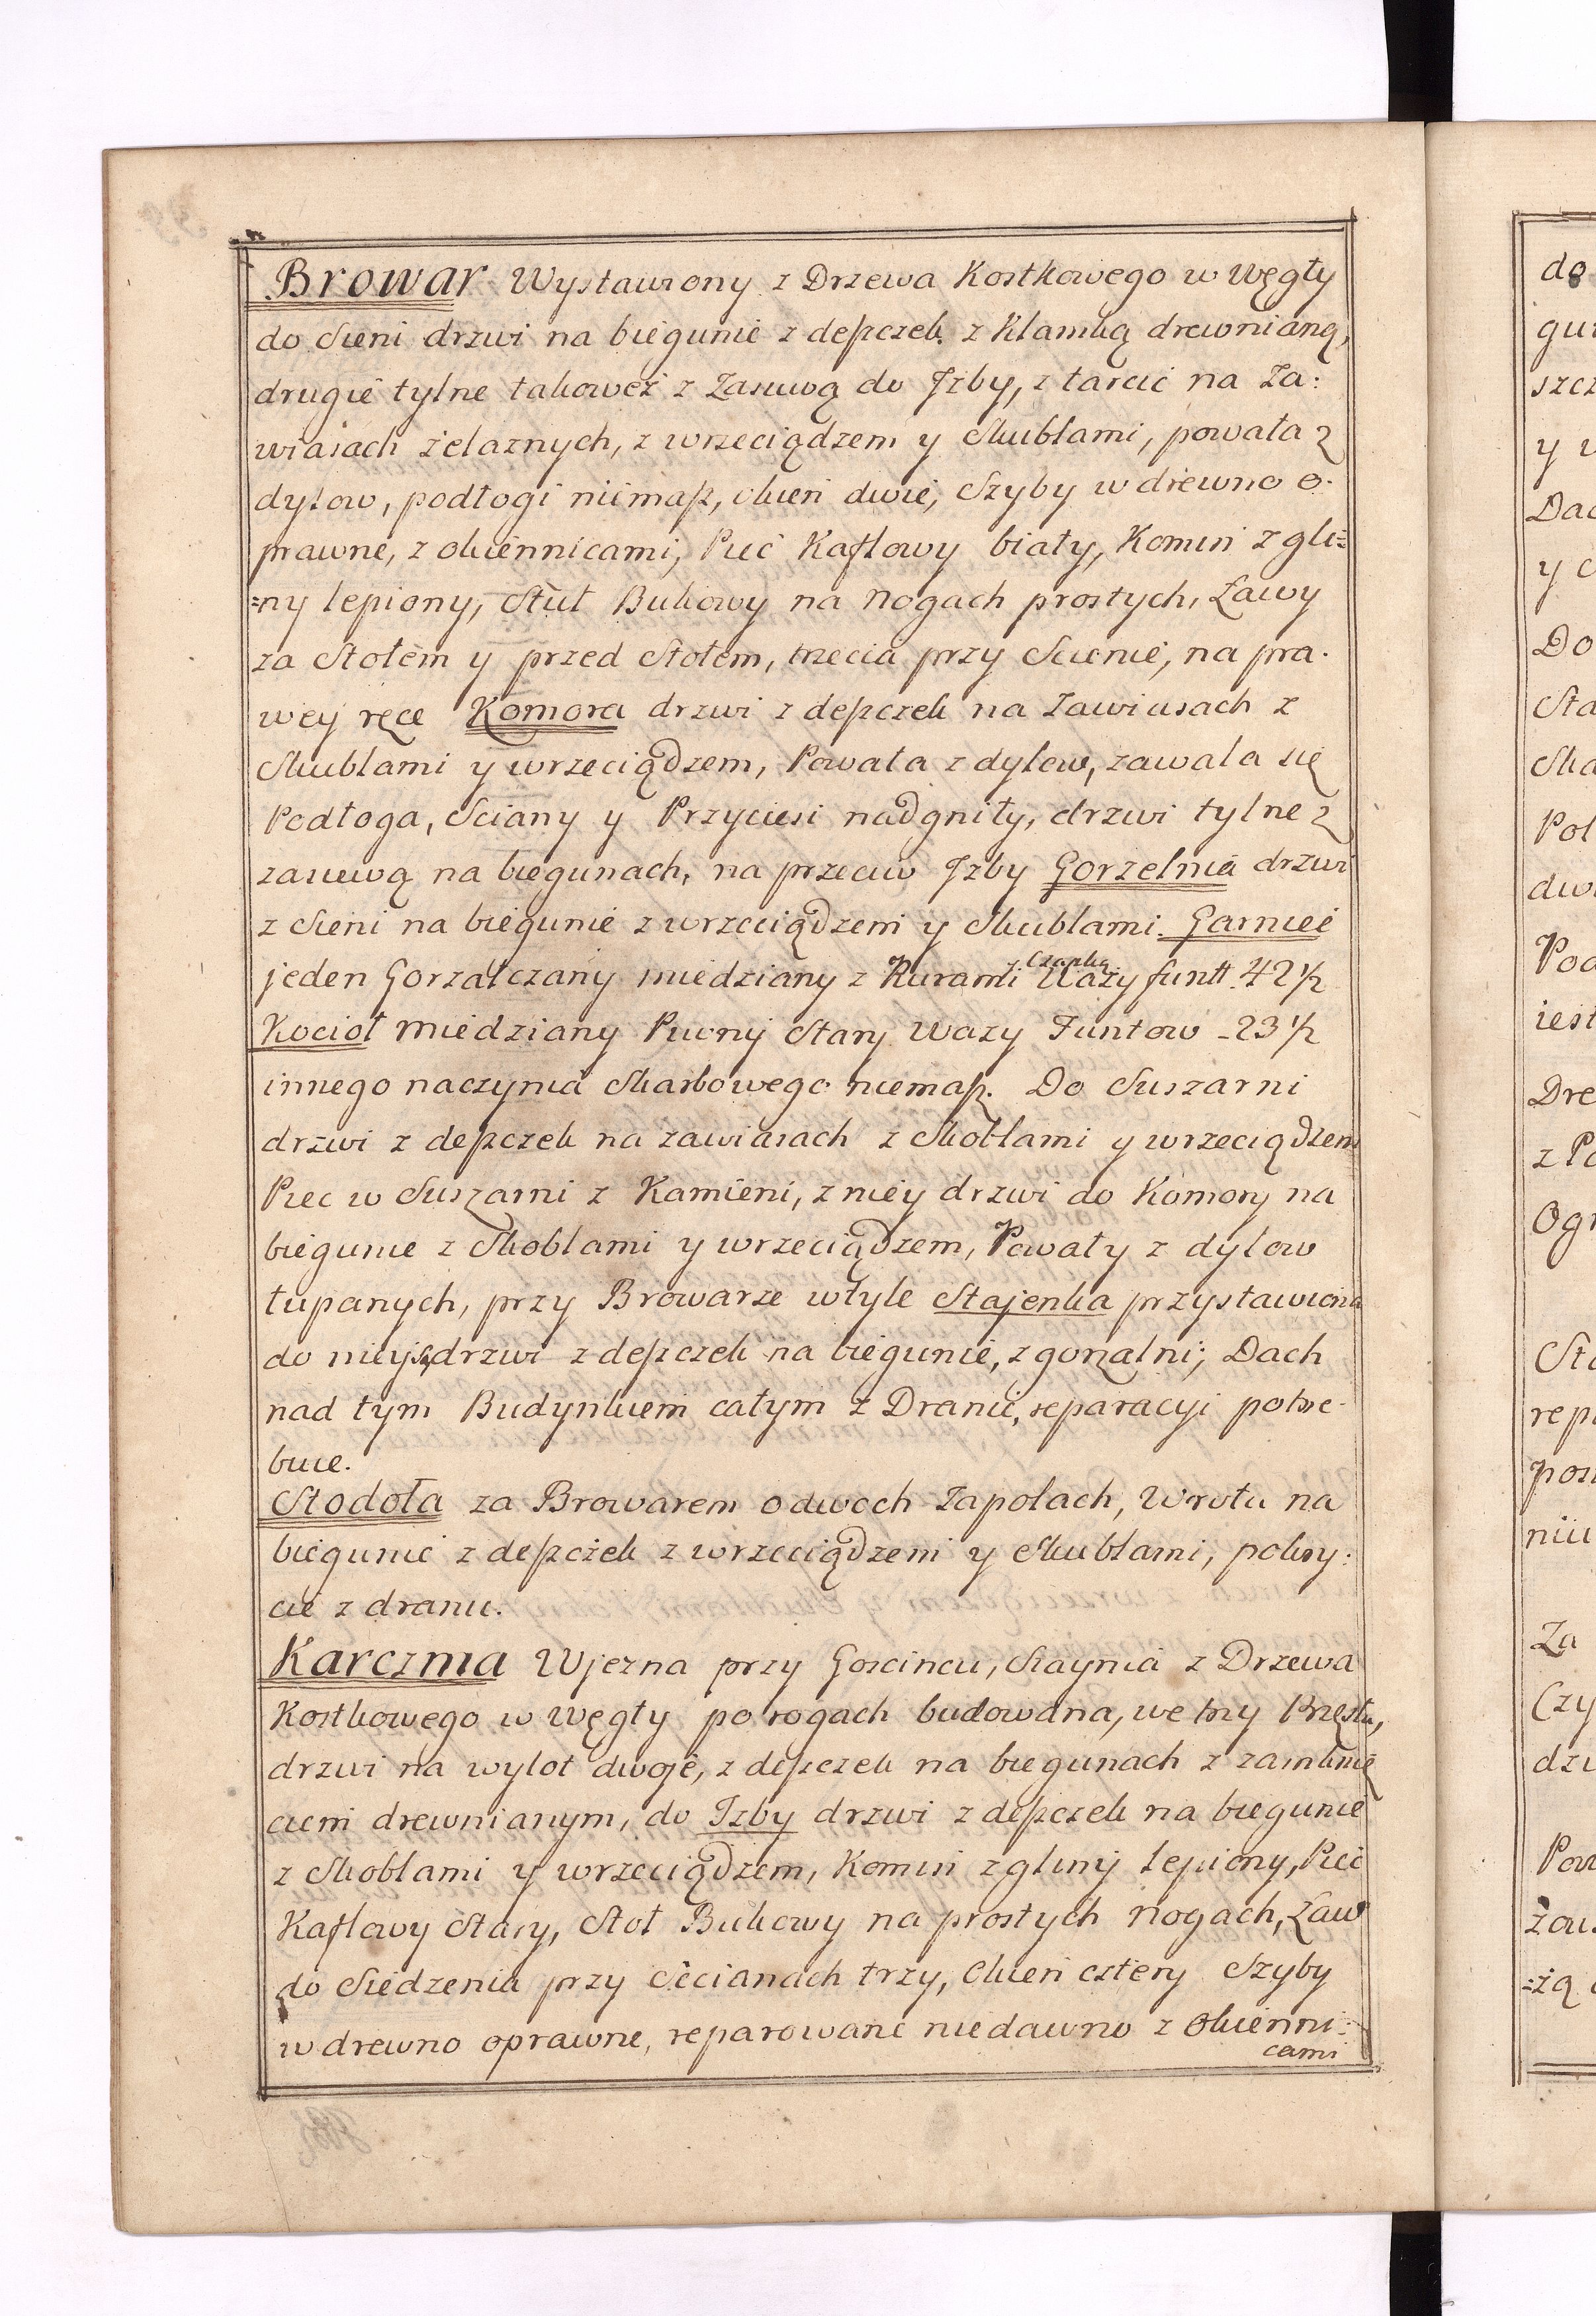 Browar Wystawiony z Drzewa Kostkowego w Węgły
do Sieni drzwi na biegunie z deszczek z Klamką drewnianą,
drugie tylne takoweż z Zasuwą do Jzby, z tarcic na Za:
wiasach żelaznych, z wrzeciądzem y Skublami, powała z
dylow, podłogi niemasz, okien dwie, Szyby w drewno o-
prawne, z okiennicami, Piec Kaflowy biały, Komin z gli=
=ny lepiony, Stuł Bukowy na nogach prostych, Ławy
za Stołem y przed Stołem, trzecia przy Scienie, na pra-
wey ręce Komora drzwi z deszczek na Zawiasach z
Skublami y wrzeciądzem, Powała z dylow, zawala się
Podłoga, Sciany y Przyciesi nadgniły, drzwi tylne z
zasuwą na biegunach, na przeciw Jzby Gorzelnia drzwi
z Sieni na biegunie z wrzeciądzem y Skublami. Garniec
jeden Gorzałczany miedziany z Rurami Czapką Waży funtt. 42 1/2
Kocioł miedziany Piwny Stary Wazy Funtow - 23 1/2
innego naczynia Skarbowego niemasz. Do Suszarni
drzwi z deszczek na zawiasach z Skoblami y wrzeciądzem
Piec w Suszarni z Kamieni, z niey drzwi do Komory na
biegunie z Skoblami y wrzeciądzem, Powały z dylow
łupanych, przy Browarze w tyle Stajenka przystawiona
do niey są drzwi z deszczek na biegunie, z gorzalni; Dach
nad tym Budynkiem całym z Dranic, reparacyi potrze-
buie.
Stodoła za Browarem o dwoch Zapolach, Wrota na
biegunie z deszczek z wrzeciądzem y Skublami, pokry:
cie z dranic.
Karczma Wjezna przy Goscincu, Staynia z Drzewa
Kostkowego w Węgły po rogach budowana, we trzy Przęsła,
drzwi na wylot dwoje, z deszczek na biegunach z zamknię
ciem drewnianym, do Izby drzwi z deszczek na biegunie
z Skoblami y wrzeciądzem, Komin z gliny lepiony, Piec
Kaflowy Stary, Stoł Bukowy na prostych nogach, Ław
do Siedzenia przy Scianach trzy, Okien cztery Szyby
w drewno oprawne, reparowane niedawno z Okienni:
cami